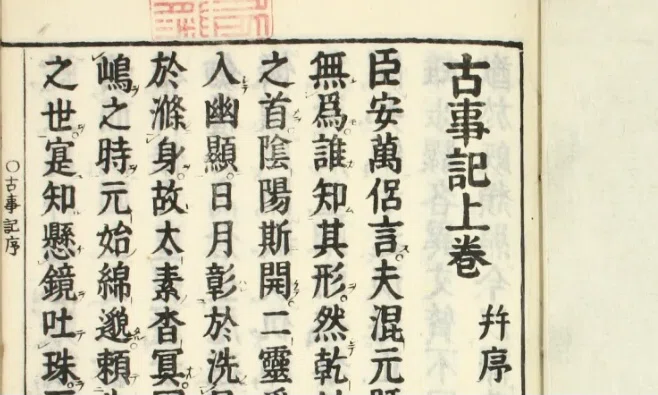 古事記上卷 幷序
臣安萬侶言夫混元
無爲誰知其形然乾
之首陰陽斯開二靈
入幽顯日月彰於洗
於滌身故太素杳冥
嶋之時元始綿邈頼
之世寔知懸鏡吐珠
○古事記序